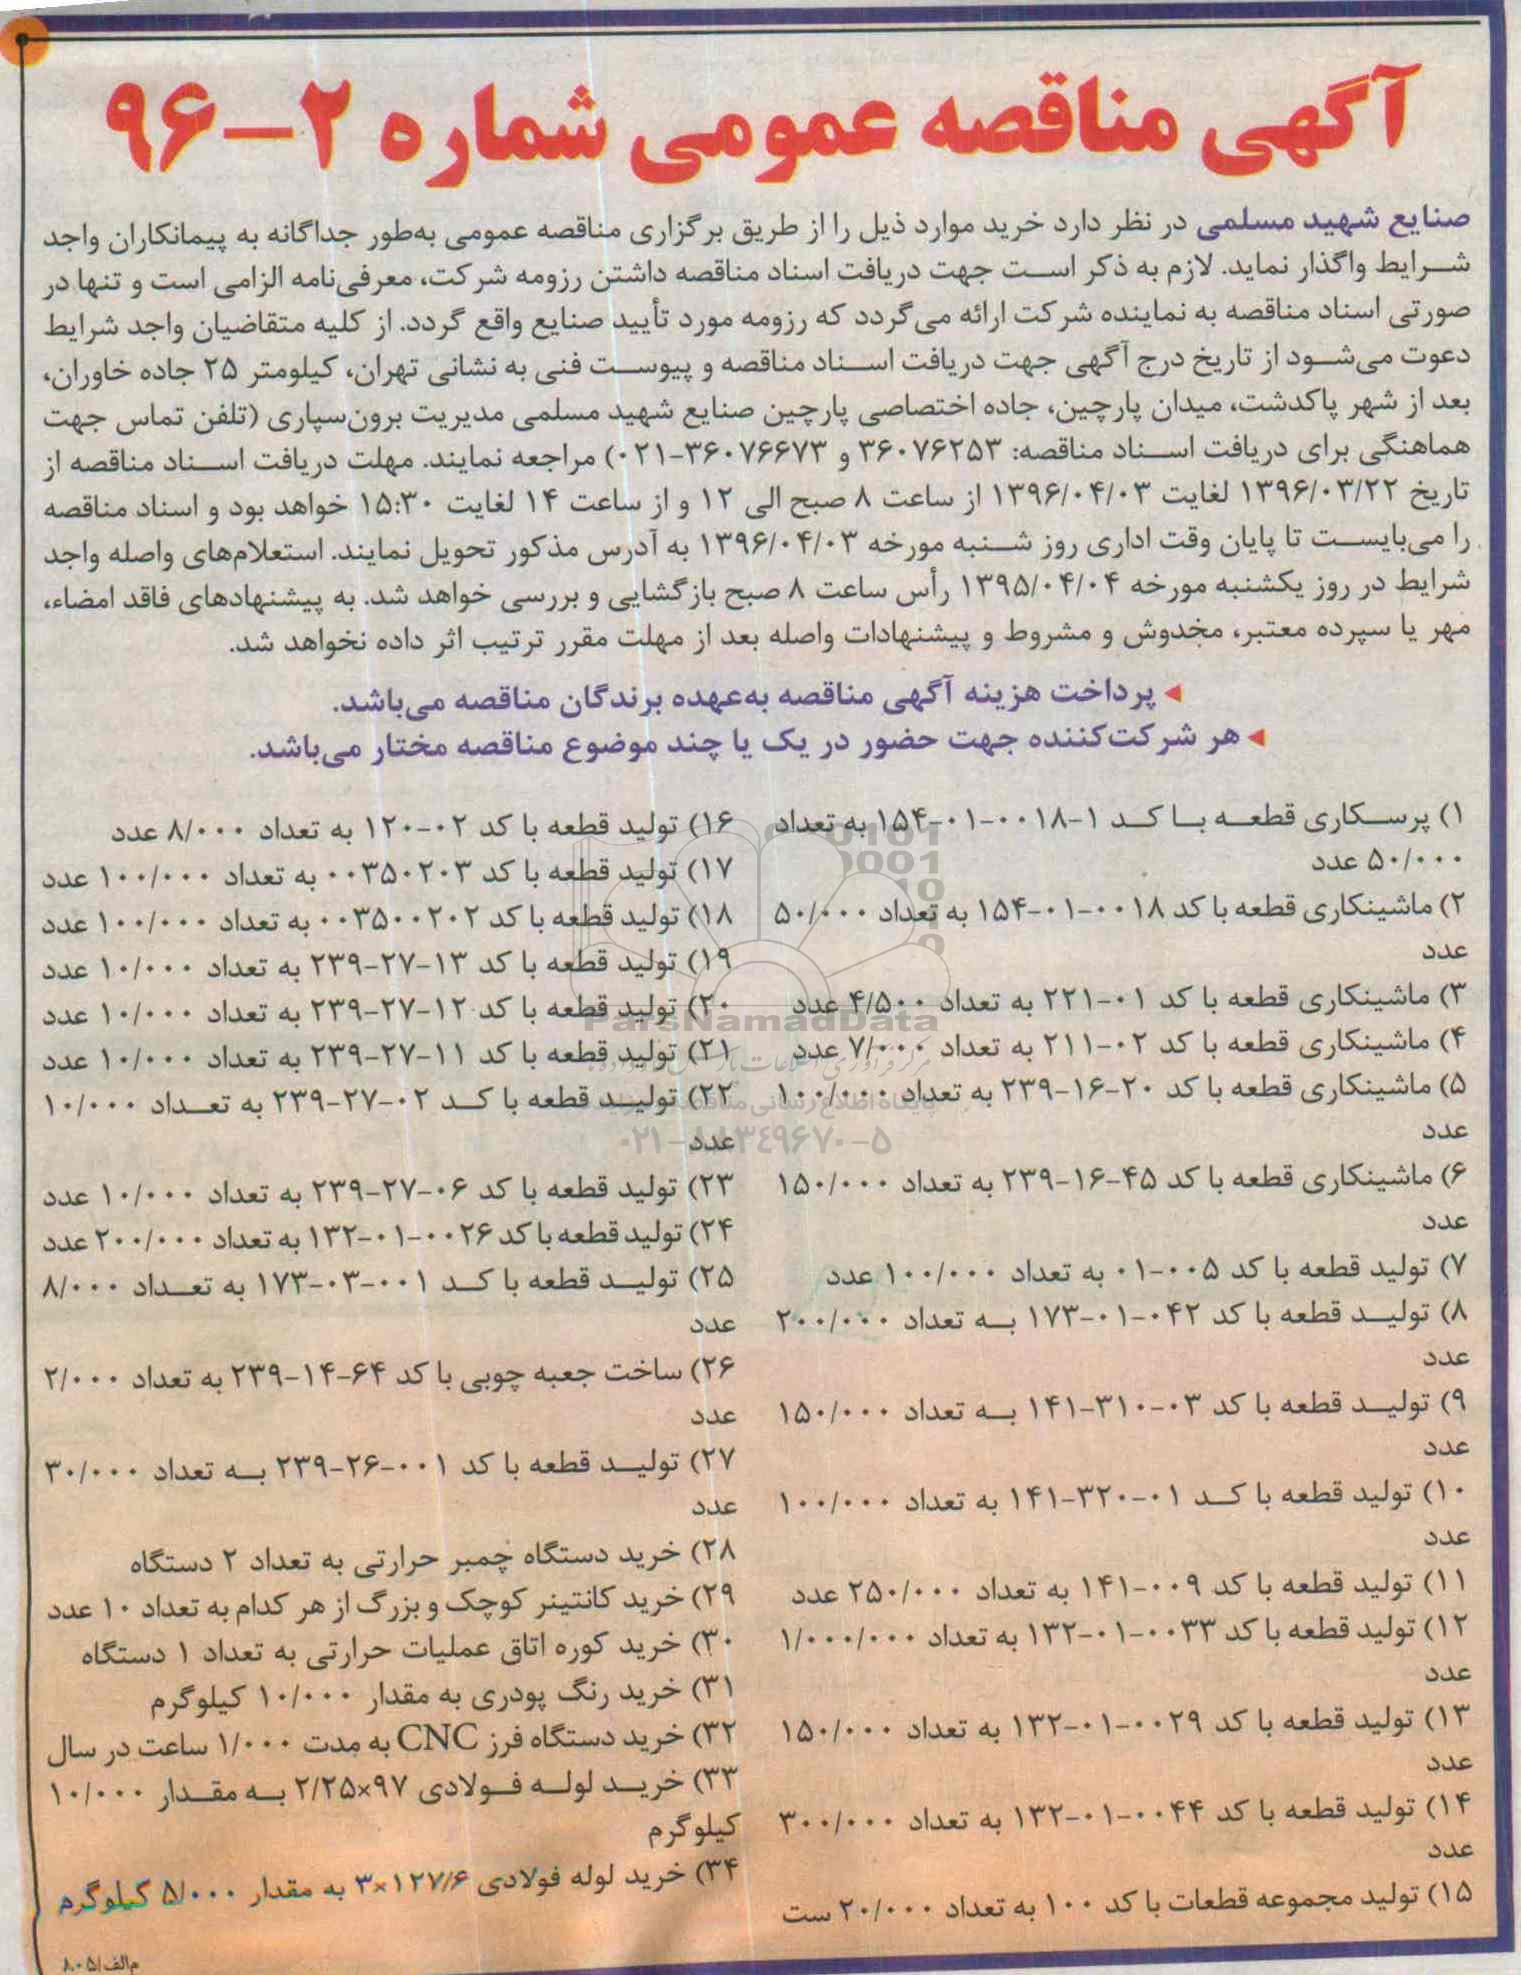 آگهی مناقصه عمومی شماره ۲-۹۶
صنایع شهید مسلمی در نظر دارد خرید موارد ذیل را از طریق برگزاری مناقصه عمومی به‌طور جداگانه به پیمانکاران واجد
شرایط واگذار نماید. لازم به ذکر است جهت دریافت اسناد مناقصه داشتن رزومه شرکت، معرفی‌نامه الزامی است و تنها در
صورتی اسناد مناقصه به نماینده شرکت ارائه می‌گردد که رزومه مورد تأیید صنایع واقع گردد. از کلیه متقاضیان واجد شرایط
دعوت می‌شود از تاریخ درج آگهی جهت دریافت اسناد مناقصه و پیوست فنی به نشانی تهران، کیلومتر ۲۵ جاده خاوران،
بعد از شهر پاکدشت، میدان پارچین، جاده اختصاصی پارچین صنایع شهید مسلمی مدیریت برون‌سپاری (تلفن تماس جهت
هماهنگی برای دریافت اسناد مناقصه: ۳۶۰۷۶۲۵۳ و ۳۶۰۷۶۶۷۳-۰۲۱) مراجعه نمایند. مهلت دریافت اسناد مناقصه از
تاریخ ۱۳۹۶/۰۳/۲۲ لغایت ۱۳۹۶/۰۴/۰۳ از ساعت ۸ صبح الی ۱۲ و از ساعت ۱۴ لغایت ۱۵:۳۰ خواهد بود و اسناد مناقصه
را می‌بایست تا پایان وقت اداری روز شنبه مورخه ۱۳۹۶/۰۴/۰۳ به آدرس مذکور تحویل نمایند. استعلام‌های واصله واجد
شرایط در روز یکشنبه مورخه ۱۳۹۵/۰۴/۰۴ رأس ساعت ۸ صبح بازگشایی و بررسی خواهد شد. به پیشنهادهای فاقد امضاء،
مهر یا سپرده معتبر، مخدوش و مشروط و پیشنهادات واصله بعد از مهلت مقرر ترتیب اثر داده نخواهد شد.
◄ پرداخت هزینه آگهی مناقصه به‌عهده برندگان مناقصه می‌باشد.
◄ هر شرکت‌کننده جهت حضور در یک یا چند موضوع مناقصه مختار می‌باشد.
۱) پرسکاری قطعه با کد ۱-۰۰۱۸-۰۱-۱۵۴ به تعداد
۵۰/۰۰۰ عدد
۲) ماشینکاری قطعه با کد ۰۰۱۸-۰۱-۱۵۴ به تعداد ۵۰/۰۰۰
عدد
۳) ماشینکاری قطعه با کد ۰۱-۲۲۱ به تعداد ۴/۵۰۰ عدد
۴) ماشینکاری قطعه با کد ۰۲-۲۱۱ به تعداد ۷/۰۰۰ عدد
۵) ماشینکاری قطعه با کد ۲۰-۱۶-۲۳۹ به تعداد ۱۰۰/۰۰۰
عدد
۶) ماشینکاری قطعه با کد ۴۵-۱۶-۲۳۹ به تعداد ۱۵۰/۰۰۰
عدد
۷) تولید قطعه با کد ۰۰۵-۰۱ به تعداد ۱۰۰/۰۰۰ عدد
۸) تولید قطعه با کد ۰۴۲-۰۱-۱۷۳ به تعداد ۲۰۰/۰۰۰
عدد
۹) تولید قطعه با کد ۰۳-۳۱۰-۱۴۱ به تعداد ۱۵۰/۰۰۰
عدد
۱۰) تولید قطعه با کد ۰۱-۳۲۰-۱۴۱ به تعداد ۱۰۰/۰۰۰
عدد
۱۱) تولید قطعه با کد ۰۰۹-۱۴۱ به تعداد ۲۵۰/۰۰۰ عدد
۱۲) تولید قطعه با کد ۰۰۳۳-۰۱-۱۳۲ به تعداد ۱/۰۰۰/۰۰۰
عدد
۱۳) تولید قطعه با کد ۰۰۲۹-۰۱-۱۳۲ به تعداد ۱۵۰/۰۰۰
عدد
۱۴) تولید قطعه با کد ۰۰۴۴-۰۱-۱۳۲ به تعداد ۳۰۰/۰۰۰
عدد
۱۵) تولید مجموعه قطعات با کد ۱۰۰ به تعداد ۲۰/۰۰۰ ست
۱۶) تولید قطعه با کد ۰۲-۱۲۰ به تعداد ۸/۰۰۰ عدد
۱۷) تولید قطعه با کد ۰۰۳۵۰۲۰۳ به تعداد ۱۰۰/۰۰۰ عدد
۱۸) تولید قطعه با کد ۰۰۳۵۰۰۲۰۲ به تعداد ۱۰۰/۰۰۰ عدد
۱۹) تولید قطعه با کد ۱۳-۲۷-۲۳۹ به تعداد ۱۰/۰۰۰ عدد
۲۰) تولید قطعه با کد ۱۲-۲۷-۲۳۹ به تعداد ۱۰/۰۰۰ عدد
۲۱) تولید قطعه با کد ۱۱-۲۷-۲۳۹ به تعداد ۱۰/۰۰۰ عدد
۲۲) تولید قطعه با کد ۰۲-۲۷-۲۳۹ به تعداد ۱۰/۰۰۰
عدد
۲۳) تولید قطعه با کد ۰۶-۲۷-۲۳۹ به تعداد ۱۰/۰۰۰ عدد
۲۴) تولید قطعه با کد ۰۰۲۶-۰۱-۱۳۲ به تعداد ۲۰۰/۰۰۰ عدد
۲۵) تولید قطعه با کد ۰۰۱-۰۳-۱۷۳ به تعداد ۸/۰۰۰
عدد
۲۶) ساخت جعبه چوبی با کد ۶۴-۱۴-۲۳۹ به تعداد ۲/۰۰۰
عدد
۲۷) تولید قطعه با کد ۰۰۱-۲۶-۲۳۹ به تعداد ۳۰/۰۰۰
عدد
۲۸) خرید دستگاه چمبر حرارتی به تعداد ۲ دستگاه
۲۹) خرید کانتینر کوچک و بزرگ از هر کدام به تعداد ۱۰ عدد
۳۰) خرید کوره اتاق عملیات حرارتی به تعداد ۱ دستگاه
۳۱) خرید رنگ پودری به مقدار ۱۰/۰۰۰ کیلوگرم
۳۲) خرید دستگاه فرز CNC به مدت ۱/۰۰۰ ساعت در سال
۳۳) خرید لوله فولادی ۹۷×۲/۲۵ به مقدار ۱۰/۰۰۰
کیلوگرم
۳۴) خرید لوله فولادی ۱۲۷/۶×۳ به مقدار ۵/۰۰۰ کیلوگرم
م‌الف/۸۰۵
ParsNamadData
۰۲۱-۸۸۳۴۹۶۷۰-۵